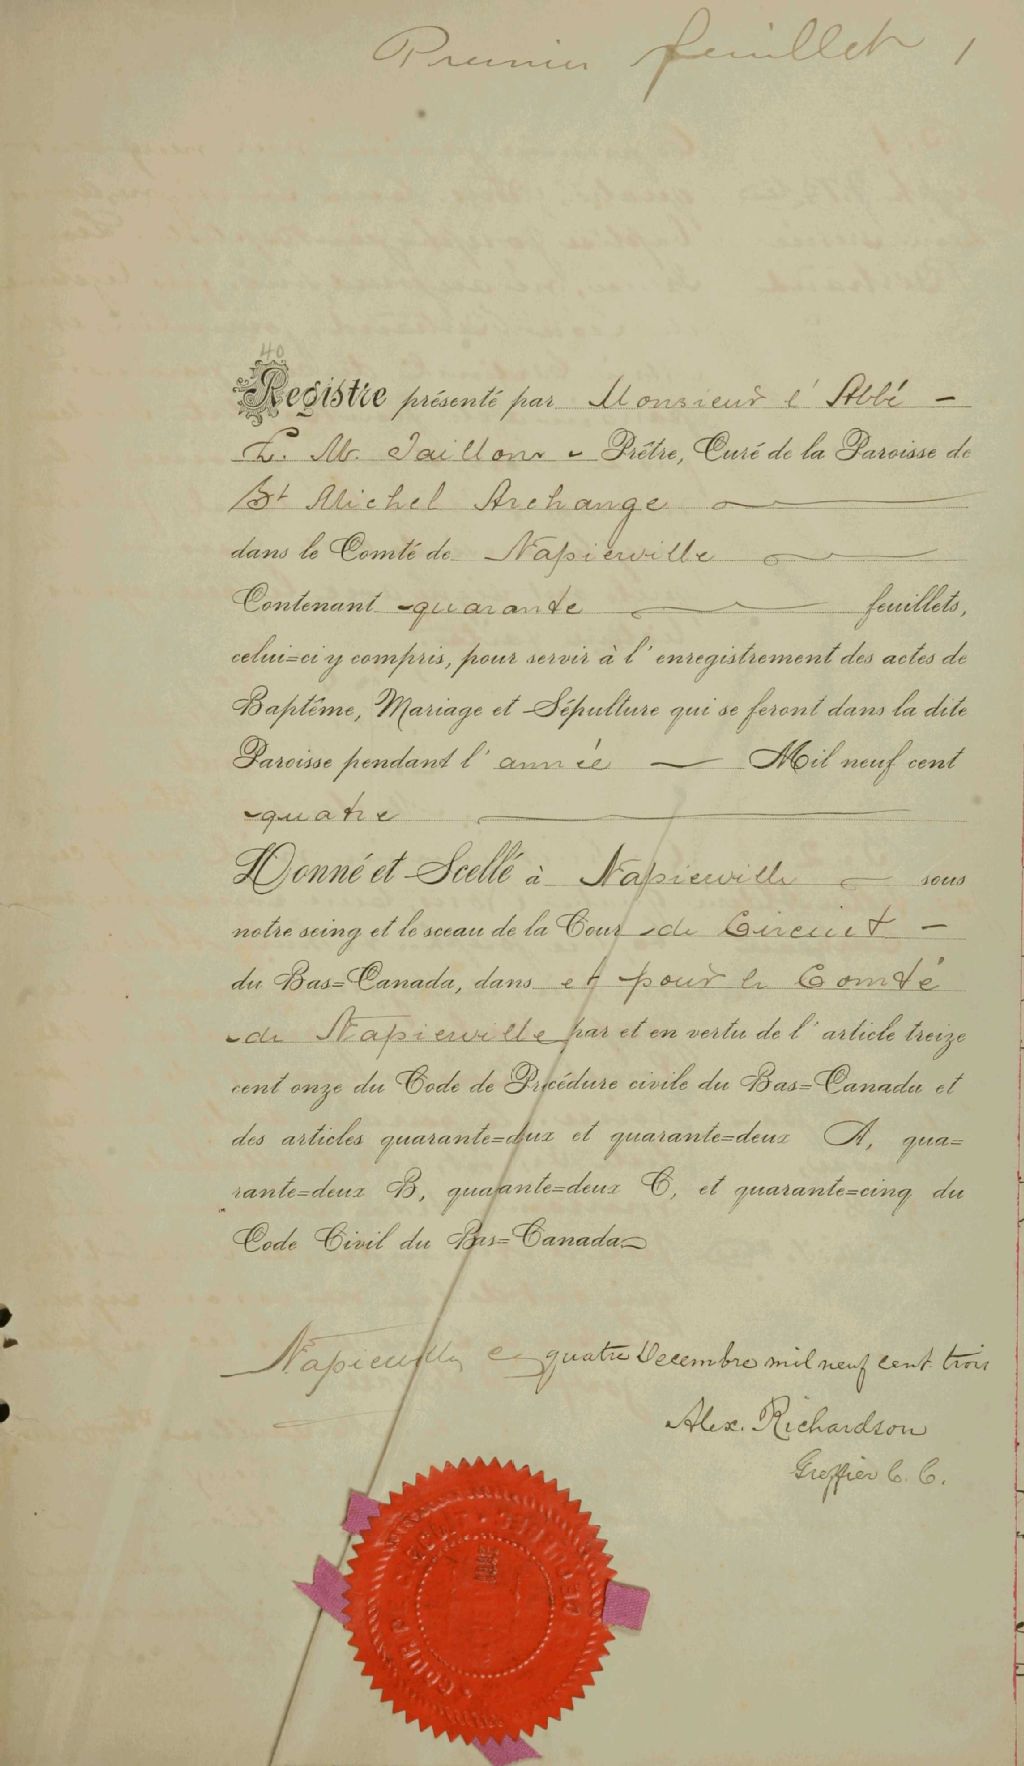 Premier feuillet 1
40
Registre présenté par Monsieur l'Abbé –
L. M. Taillon – Prêtre, Curé de la Paroisse de
St Michel Archange
dans le Comté de Napierville
Contenant quarante feuillets,
celui=ci y compris, pour servir à l'enregistrement des actes de
Baptême, Mariage et Sépulture qui se feront dans la dite
Paroisse pendant l'année – Mil neuf cent
quatre
Donné et Scellé à Napierville sous
notre seing et le sceau de la Cour de Circuit –
du Bas=Canada, dans et pour le Comté
de Napierville par et en vertu de l'article treize
cent onze du Code de Procédure civile du Bas=Canada et
des articles quarante=deux et quarante=deux A, qua=
rante=deux B, quarante=deux C, et quarante=cinq du
Code Civil du Bas=Canada
Napierville ce quatre Decembre mil neuf cent trois
Alex. Richardson
Greffier C. C.